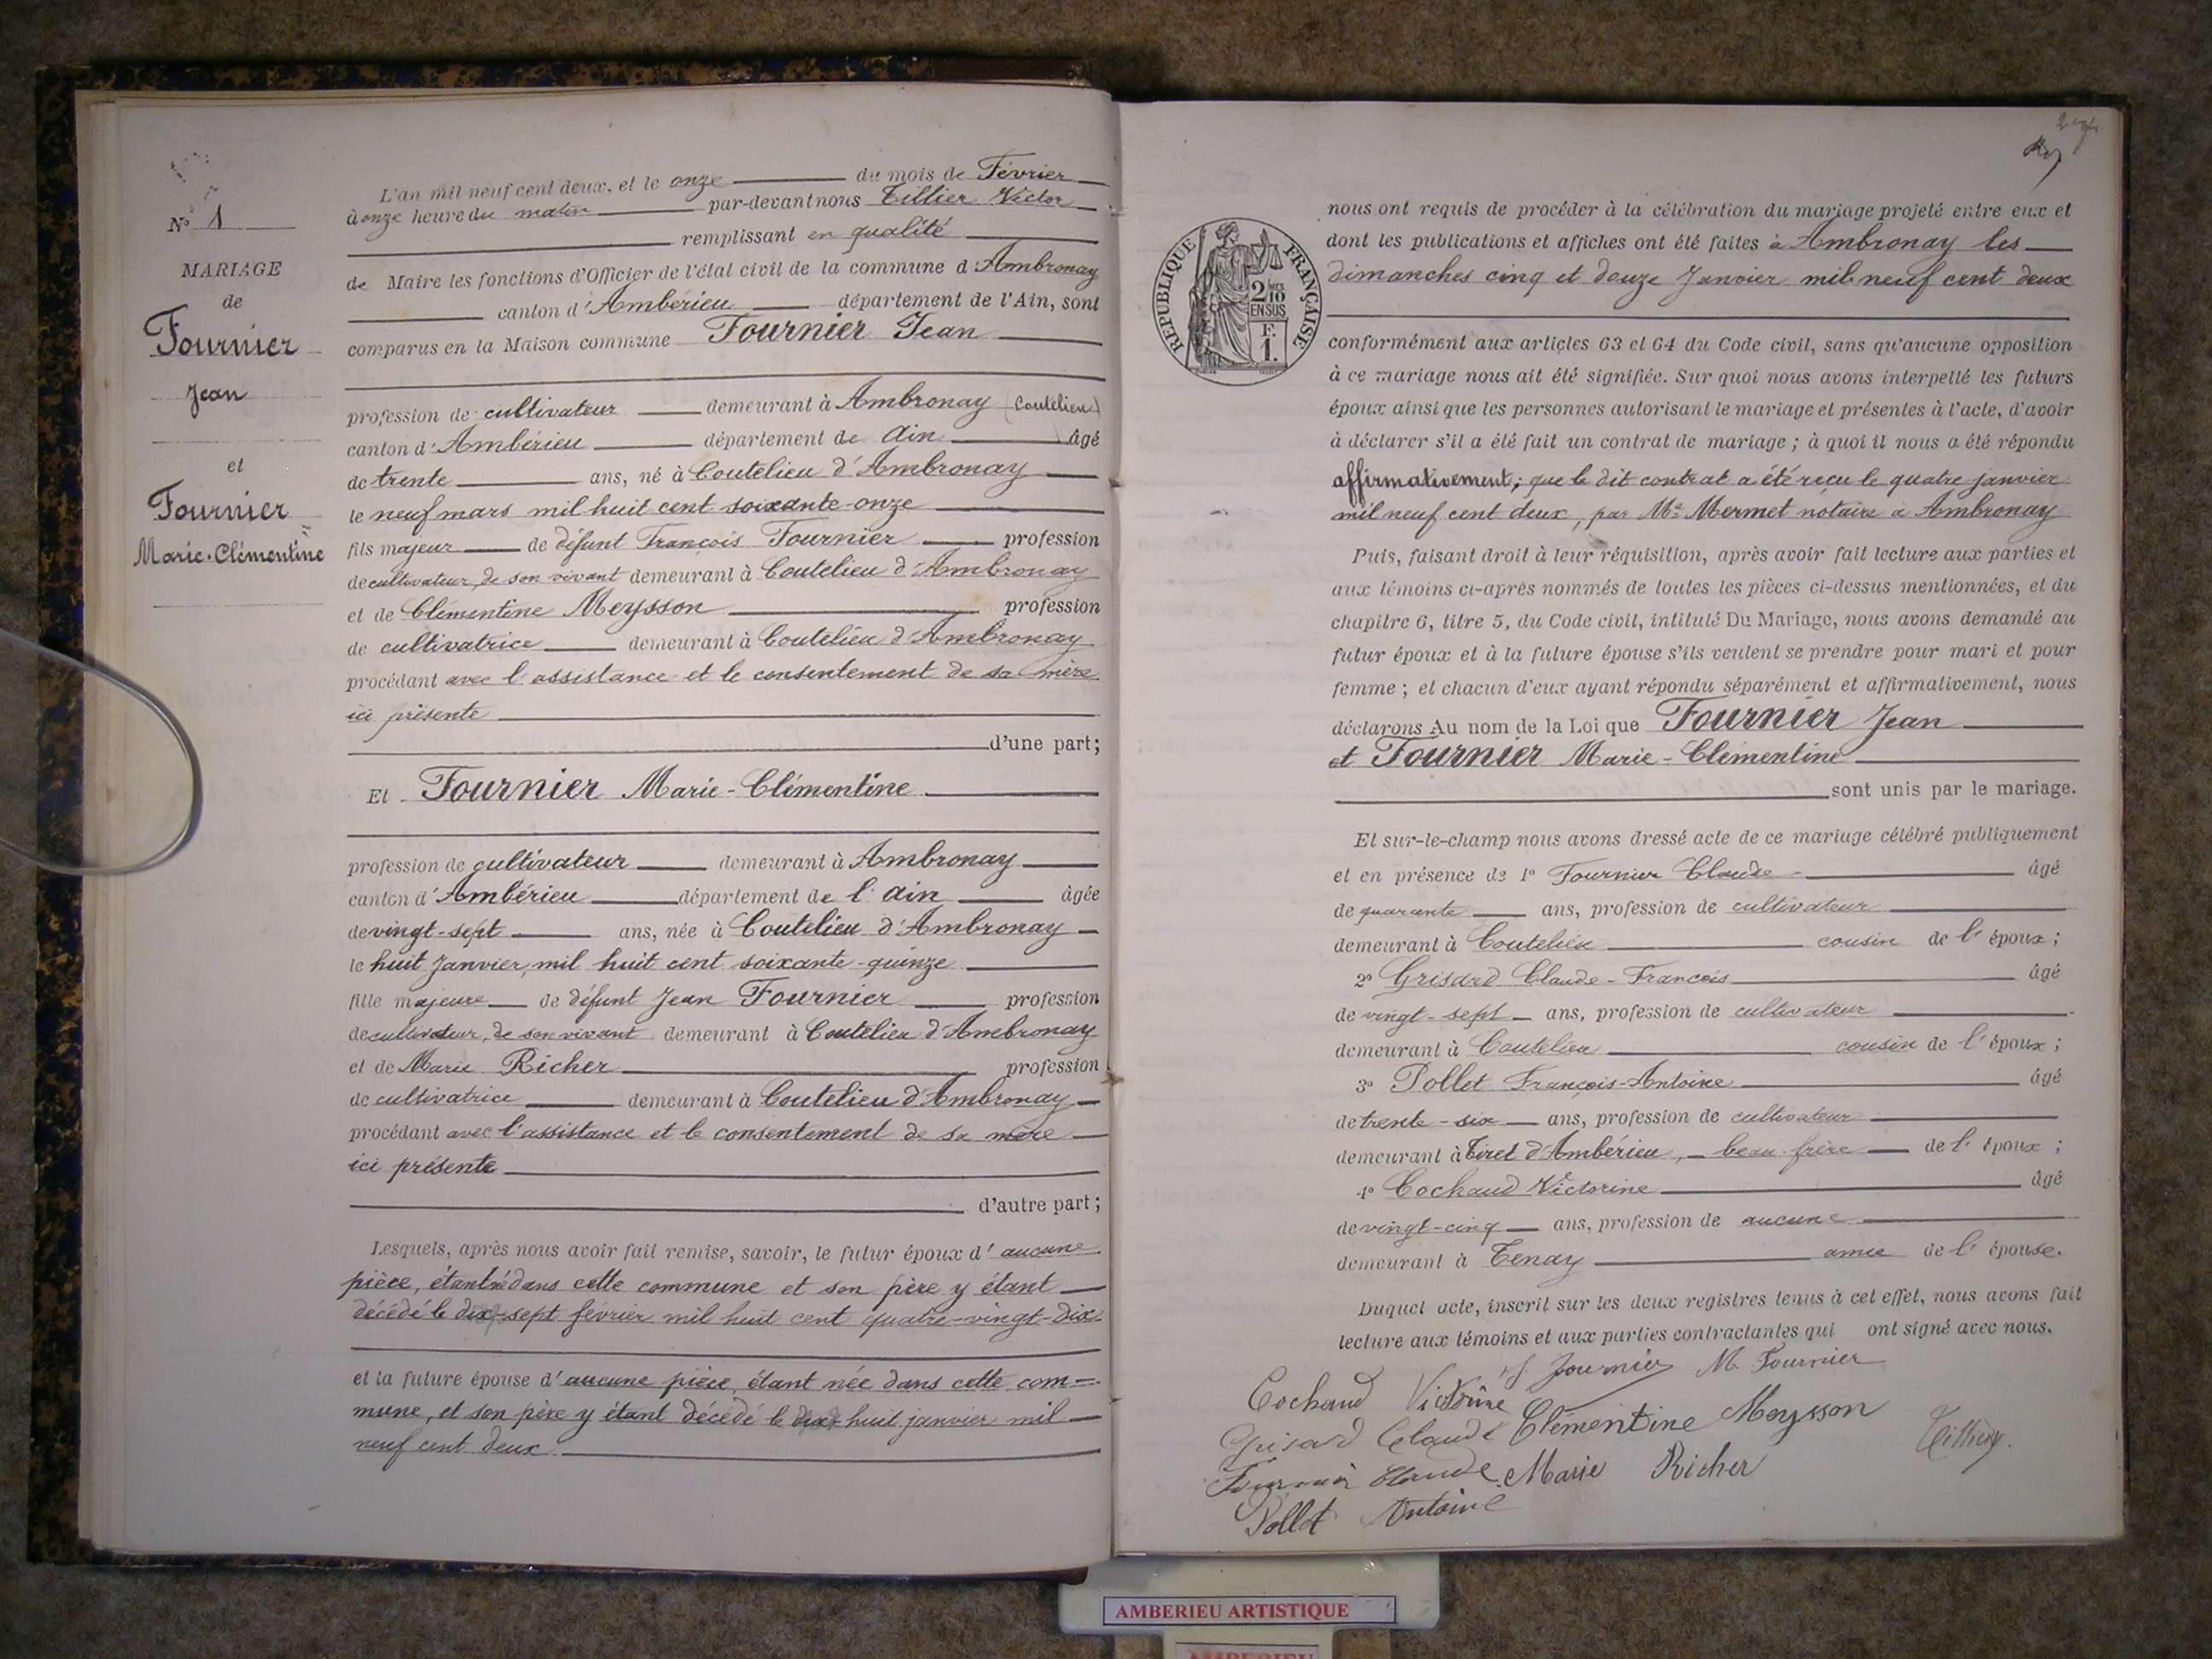 N° 1
MARIAGE
de
Fournier
Jean
et
Fournier
Marie-Clémentine
L'an mil neuf cent deux, et le onze du mois de Février
à onze heure du matin par-devant nous Tillier Victor
remplissant en qualité
de Maire les fonctions d'Officier de l'état civil de la commune d'Ambronay
canton d'Ambérieu département de l'Ain, sont
comparus en la Maison commune Fournier Jean
profession de cultivateur demeurant à Ambronay (Coutelieu)
canton d'Ambérieu département de Ain âgé
de trente ans, né à Coutelieu d'Ambronay
le neuf mars mil huit cent soixante-onze
fils majeur de défunt François Fournier profession
de cultivateur, de son vivant demeurant à Coutelieu d'Ambronay
et de Clémentine Meysson profession
de cultivatrice demeurant à Coutelieu d'Ambronay
procédant avec l'assistance et le consentement de sa mère
ici présente
d'une part;
Et Fournier Marie-Clémentine
profession de cultivateur demeurant à Ambronay
canton d'Ambérieu département de l'Ain âgée
de vingt-sept ans, née à Coutelieu d'Ambronay
le huit Janvier, mil huit cent soixante-quinze
fille majeure de défunt Jean Fournier profession
de cultivateur, de son vivant demeurant à Coutelieu d'Ambronay
et de Marie Richer profession
de cultivatrice demeurant à Coutelieu d'Ambronay
procédant avec l'assistance et le consentement de sa mère
ici présente
d'autre part;
Lesquels, après nous avoir fait remise, savoir, le futur époux d'aucune
pièce, étant né dans cette commune et son père y étant
décédé le dix-sept février mil huit cent quatre-vingt-dix
et la future épouse d'aucune pièce, étant née dans cette com=
mune, et son père y étant décédé le huit janvier mil
neuf cent deux
RÉPUBLIQUE FRANÇAISE
2 10
EN SUS
F.
1.
nous ont requis de procéder à la célébration du mariage projeté entre eux et
dont les publications et affiches ont été faites à Ambronay les
dimanches cinq et douze Janvier mil neuf cent deux
conformément aux articles 63 et 64 du Code civil, sans qu'aucune opposition
à ce mariage nous ait été signifiée. Sur quoi nous avons interpellé les futurs
époux ainsi que les personnes autorisant le mariage et présentes à l'acte, d'avoir
à déclarer s'il a été fait un contrat de mariage ; à quoi il nous a été répondu
affirmativement; que le dit contrat a été reçu le quatre janvier
mil neuf cent deux, par Me Mermet notaire à Ambronay
Puis, faisant droit à leur réquisition, après avoir fait lecture aux parties et
aux témoins ci-après nommés de toutes les pièces ci-dessus mentionnées, et du
chapitre 6, titre 5, du Code civil, intitulé Du Mariage, nous avons demandé au
futur époux et à la future épouse s'ils veulent se prendre pour mari et pour
femme ; et chacun d'eux ayant répondu séparément et affirmativement, nous
déclarons Au nom de la Loi que Fournier Jean
et Fournier Marie-Clémentine
sont unis par le mariage.
Et sur-le-champ nous avons dressé acte de ce mariage célébré publiquement
et en présence de 1° Fournier Claude âgé
de quarante ans, profession de cultivateur
demeurant à Coutelieu cousin de l'époux;
2° Grisard Claude-François âgé
de vingt-sept ans, profession de cultivateur
demeurant à Coutelieu cousin de l'époux;
3° Pollet François-Antoine âgé
de trente-six ans, profession de cultivateur
demeurant à Tiret d'Ambérieu, beau-frère de l'époux;
4° Cochaud Victorine âgé
de vingt-cinq ans, profession de aucune
demeurant à Tenay amie de l'épouse.
Duquel acte, inscrit sur les deux registres tenus à cet effet, nous avons fait
lecture aux témoins et aux parties contractantes qui ont signé avec nous.
J Fournier M. Fournier
Cochaud Victorine
Clémentine Meysson
Grisard Claude
Tillier
Fournier Claude Marie Richer
Pollet Antoine
AMBERIEU ARTISTIQUE
AMBERIEU